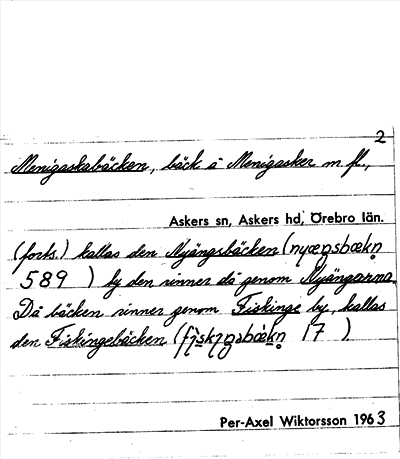 2
Menigaskabäcken, bäck å Menigasker m fl.,
Askers sn, Askers hd, Örebro län.
(forts.) kallas den Nyängsbäcken (nyæŋsbækn̥
589 ) ty den rinner då genom Nyängarna.
Då bäcken rinner genom Fiskinge by, kallas
den Fiskingebäcken (
17 ).
Per-Axel Wiktorsson 1963